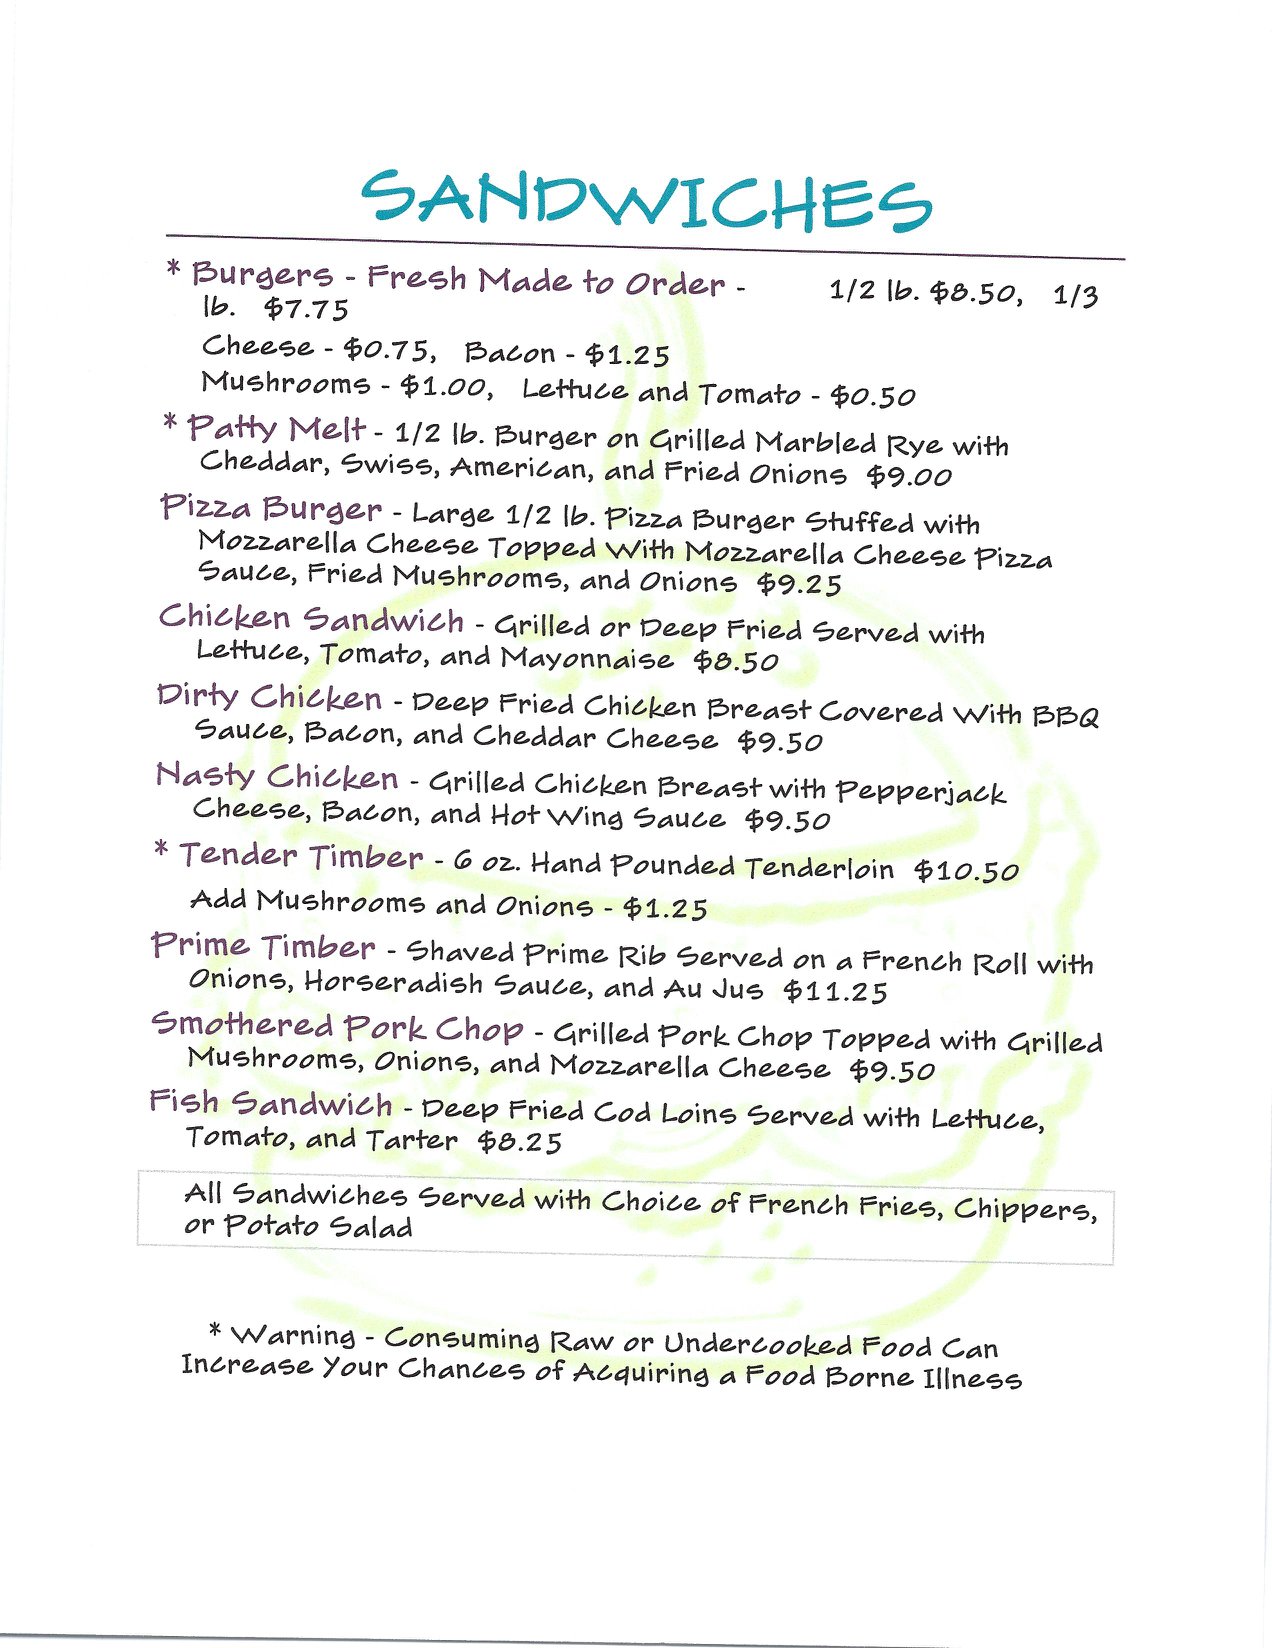 SANDWICHES
* Burgers - Fresh Made to Order - 1/2 lb. $8.50, 1/3
lb. $7.75
Cheese - $0.75, Bacon - $1.25
Mushrooms - $1.00, Lettuce and Tomato - $0.50
* Patty Melt - 1/2 lb. Burger on Grilled Marbled Rye with
Cheddar, Swiss, American, and Fried Onions $9.00
Pizza Burger - Large 1/2 lb. Pizza Burger Stuffed with
Mozzarella Cheese Topped With Mozzarella Cheese Pizza
Sauce, Fried Mushrooms, and Onions $9.25
Chicken Sandwich - Grilled or Deep Fried Served with
Lettuce, Tomato, and Mayonnaise $8.50
Dirty Chicken - Deep Fried Chicken Breast Covered With BBQ
Sauce, Bacon, and Cheddar Cheese $9.50
Nasty Chicken - Grilled Chicken Breast with Pepperjack
Cheese, Bacon, and Hot Wing Sauce $9.50
* Tender Timber - 6 oz. Hand Pounded Tenderloin $10.50
Add Mushrooms and Onions - $1.25
Prime Timber - Shaved Prime Rib Served on a French Roll with
Onions, Horseradish Sauce, and Au Jus $11.25
Smothered Pork Chop - Grilled Pork Chop Topped with Grilled
Mushrooms, Onions, and Mozzarella Cheese $9.50
Fish Sandwich - Deep Fried Cod Loins Served with Lettuce,
Tomato, and Tarter $8.25
All Sandwiches Served with Choice of French Fries, Chippers,
or Potato Salad
* Warning - Consuming Raw or Undercooked Food Can
Increase Your Chances of Acquiring a Food Borne Illness